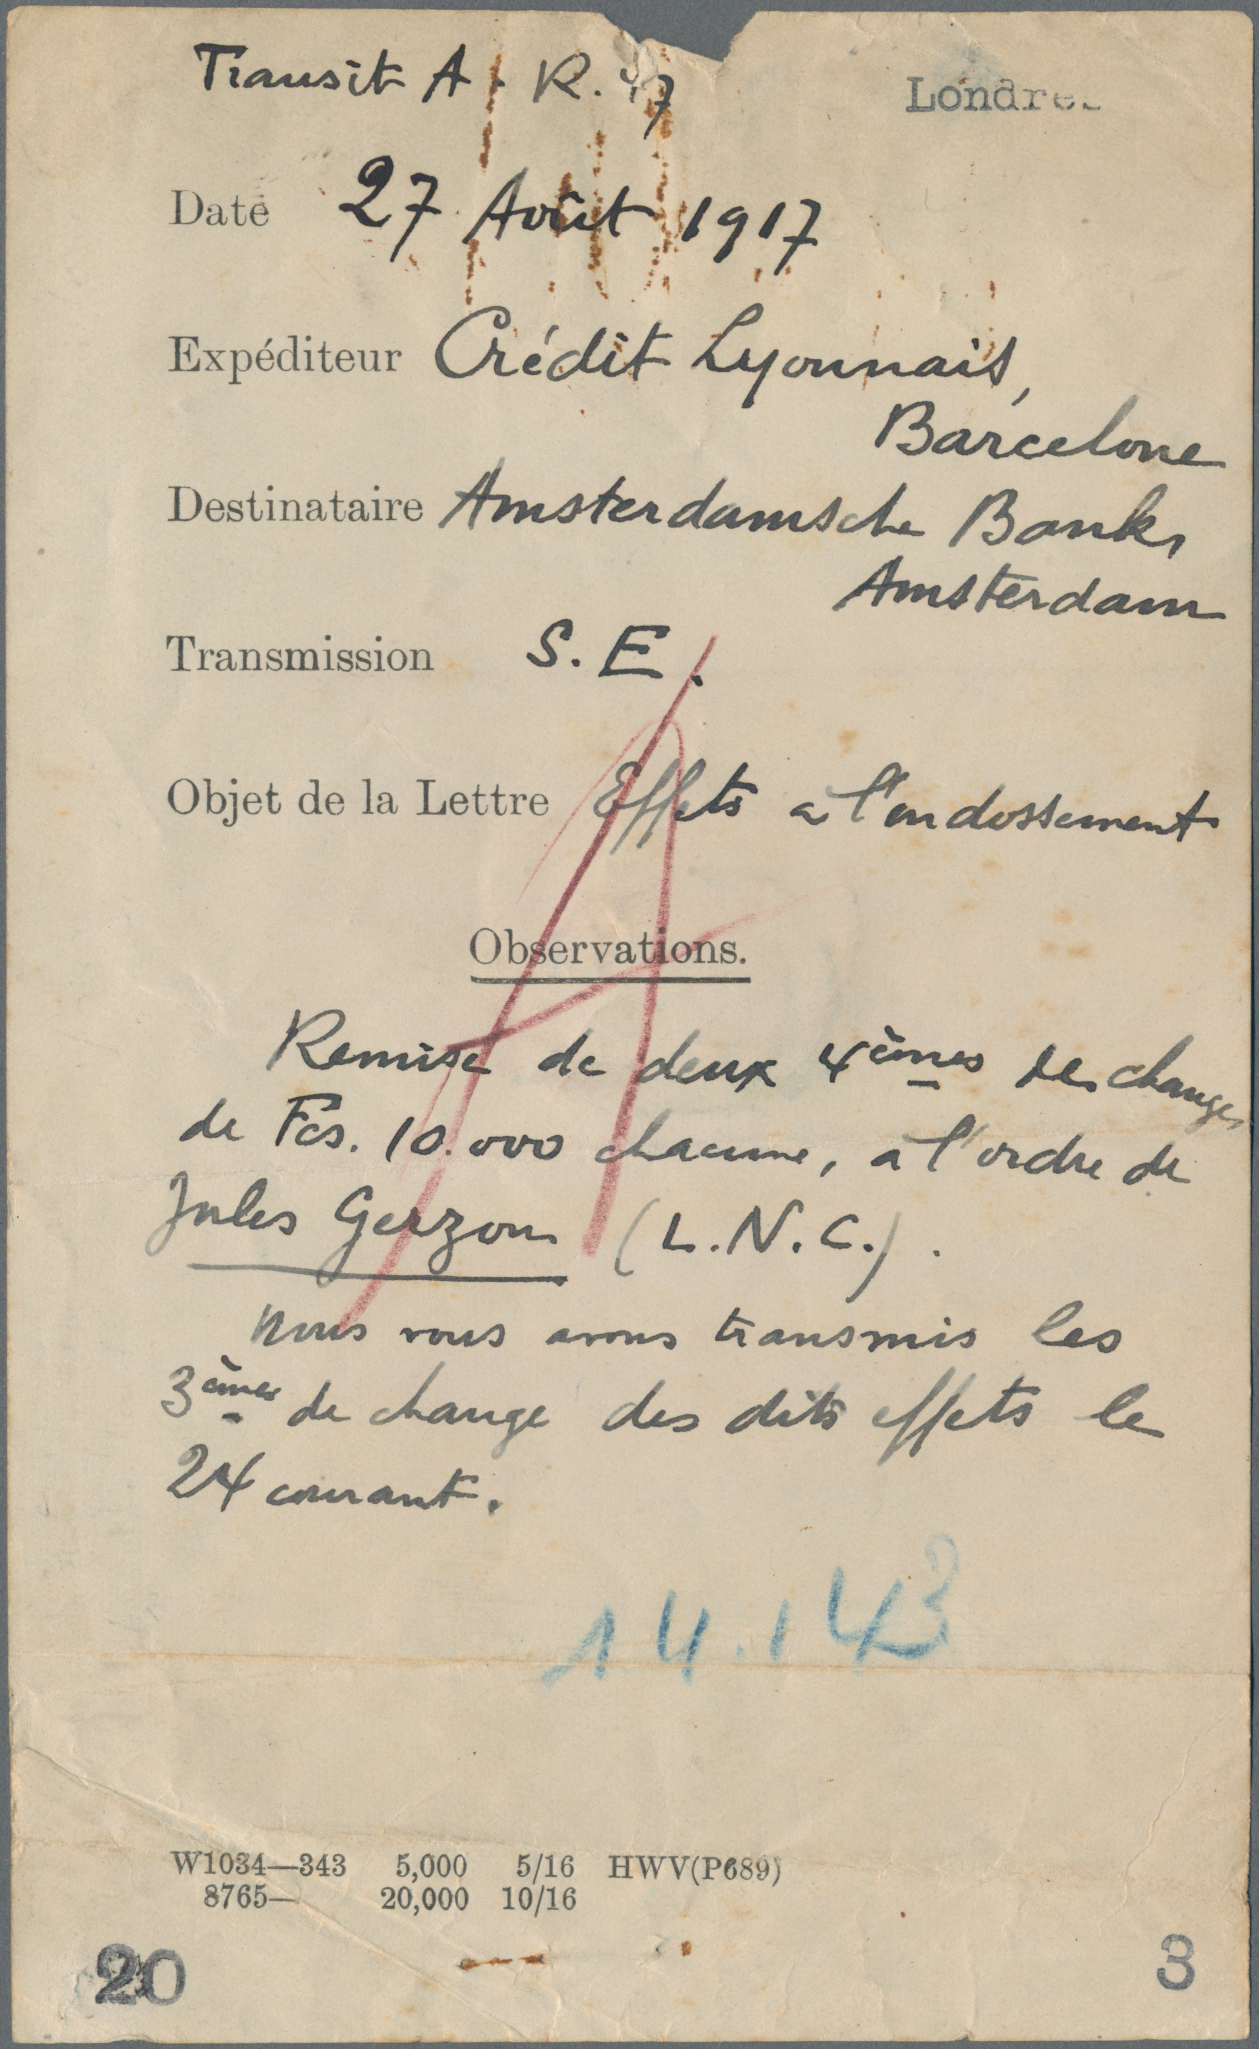 Transit A. R. 47
Londres
Date 27 Août 1917
Expéditeur Crédit Lyonnais,
Barcelone
Destinataire Amsterdamsche Bank,
Amsterdam
Transmission S. E.
Objet de la Lettre Effets a l'endossement
Observations.
Remise de deux 4èmes de change,
de Fcs. 10.000 chacune, a l'ordre de
Jules Gerzon (L.N.C.).
Nous vous avons transmis les
3èmes de change des dits effets le
24 courant.
14.143
W1034—343 5,000 5/16 HWV(P689)
8765— 20,000 10/16
20
3